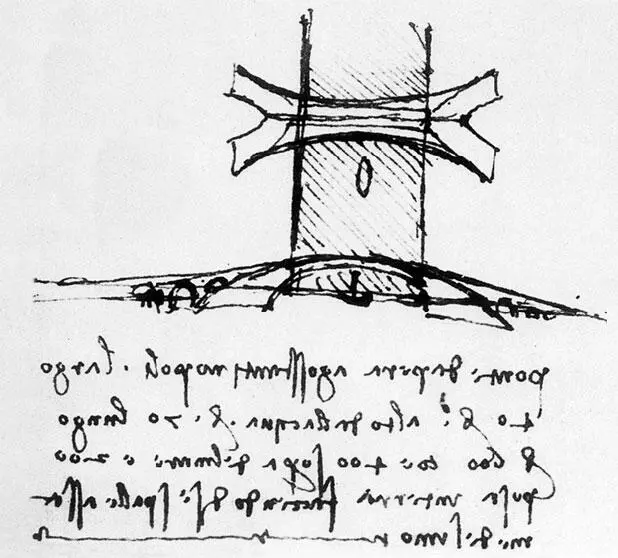 ponte da pera a gosstantinopoli . largo
40 br alto dallacqua br 70 lungo
br 600 coe 400 sopa del mare e 200
posa interra faciendo di se spalle asse
medesimo